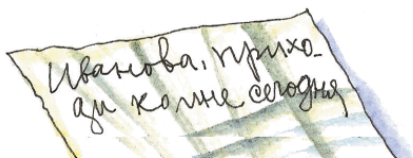 Иванова, прихо-
ди ко мне сегодня